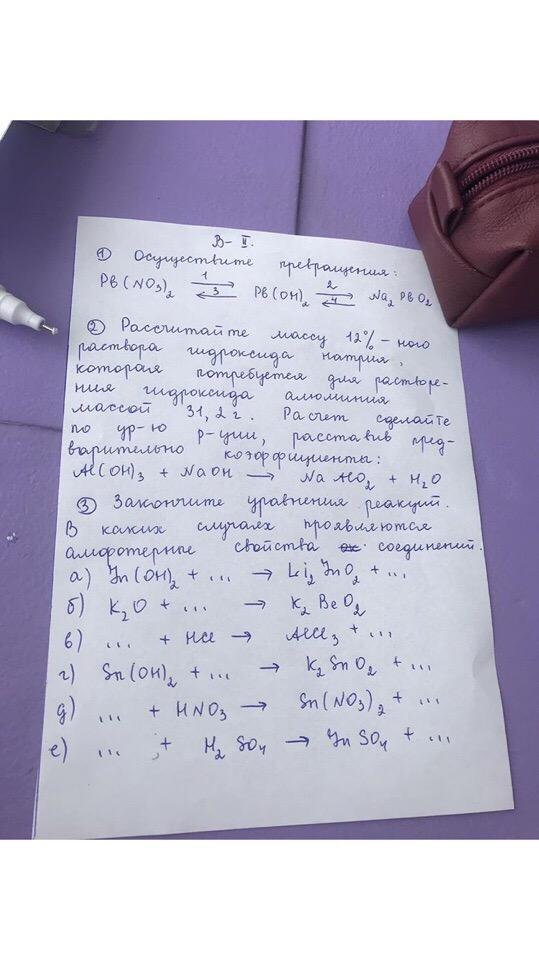 В- II.
① Осуществите превращения:
Pb(NO3)2 ⇄ Pb(OH)2 ⇄ Na2PbO2
1 3 2 4
② Рассчитайте массу 12%-ного
раствора гидроксида натрия,
которая потребуется для растворе-
ния гидроксида алюминия
массой 31,2 г. Расчет сделайте
по ур-ю р-ции, расставив пред-
варительно коэффициенты:
Al(OH)3 + NaOH → NaAlO2 + H2O
③ Закончите уравнения реакций.
В каких случаях проявляются
амфотерные свойства соединений.
а) Zn(OH)2 + ... → Li2ZnO2 + ...
б) K2O + ... → K2BeO2
в) ... + HCl → AlCl3 + ...
г) Sn(OH)2 + ... → K2SnO2 + ...
д) ... + HNO3 → Sn(NO3)2 + ...
е) ... + H2SO4 → ZnSO4 + ...